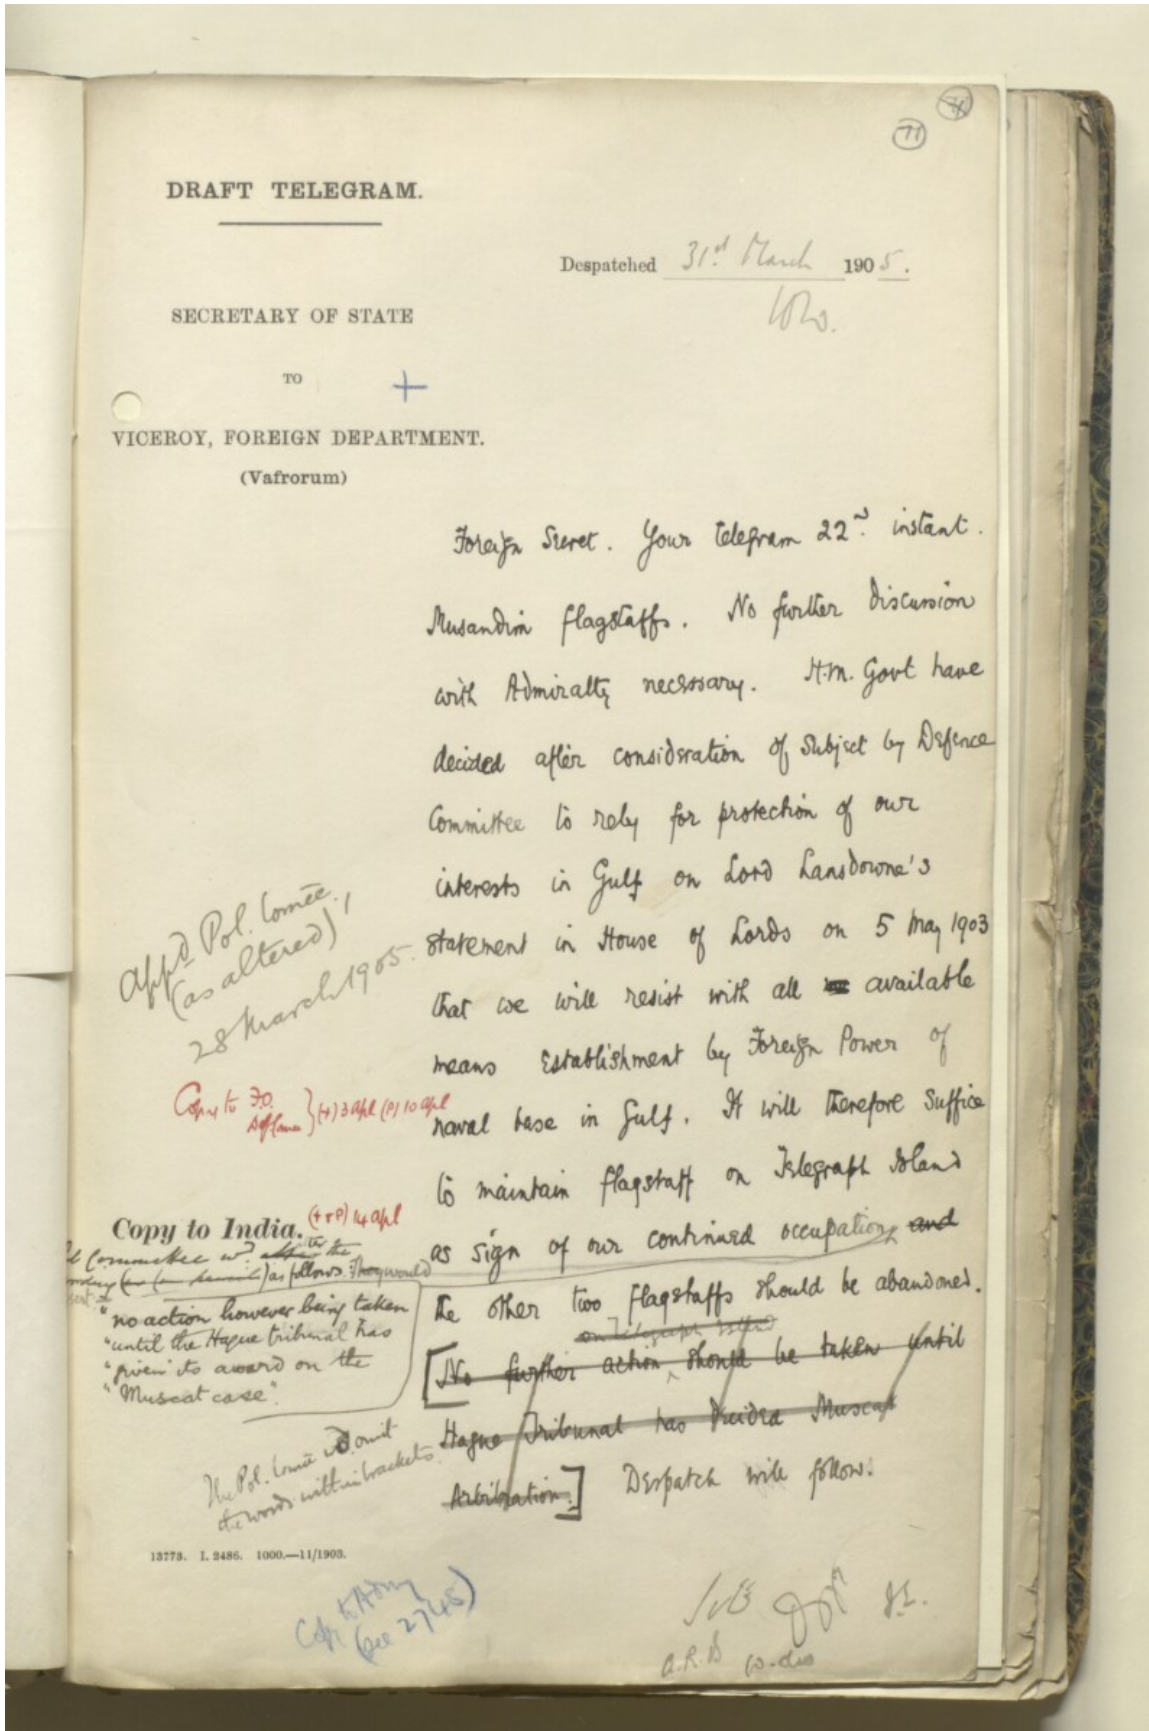 71
DRAFT TELEGRAM.
Despatched 31st March 1905.
SECRETARY OF STATE
TO
VICEROY, FOREIGN DEPARTMENT.
(Vafrorum)
Foreign Secret. Your telegram 22nd. instant.
Musandim flagstaffs. No further discussion
with Admiralty necessary. H.M. Govt have
decided after consideration of subject by Defence
Committee to rely for protection of our
interests in Gulf on Lord Lansdowne's
statement in House of Lords on 5 May 1903
that we will resist with all available
means establishment by Foreign Power of
naval base in Gulf. It will therefore suffice
to maintain flagstaff on Telegraph Island
as sign of our continued occupation, and
the other two flagstaffs should be abandoned.
on Telegraph Island
[No further action should be taken until
Hague Tribunal has decided Muscat
Arbitration.] Despatch will follow.
Appd Pol. Comee.,
(as altered)
28 March 1905.
Copy to F.O.
} (t) 3 apl (P) 10 apl
Copy to India. (t & P) 14 apl
Committee wd the
as follows: they would
"no action however being taken
"until the Hague tribunal has
"given its award on the
"Muscat case".
The Pol. Comee wd omit
the words within brackets.
13773. I. 2486. 1000.—11/1903.
Copy to Admy
(see 2745)
A.R.B